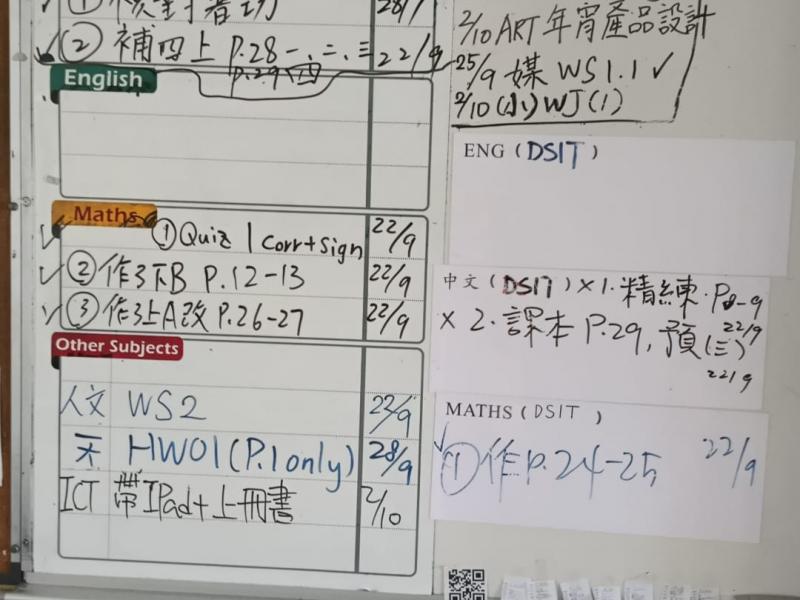 28/9
② 補四上 P.28 一、二、三 22/9
P.29 四
English
Maths
① Quiz 1 Corr+Sign 22/9
② 作3下B P.12-13 22/9
③ 作3上A改 P.26-27 22/9
Other Subjects
人文 WS2 22/9
天 HW01 (P.1 only) 28/9
ICT 帶IPad+上冊書 2/10
2/10 ART 年宵產品設計
25/9 媒 WS1.1 ✓
2/10 (小) WJ(1)
ENG (DSIT)
中文 (DSIT) × 1. 精練. P8-9
22/9
× 2. 課本 P.29, 預(三)
22/9
MATHS (DSIT)
① 作P.24-25 22/9